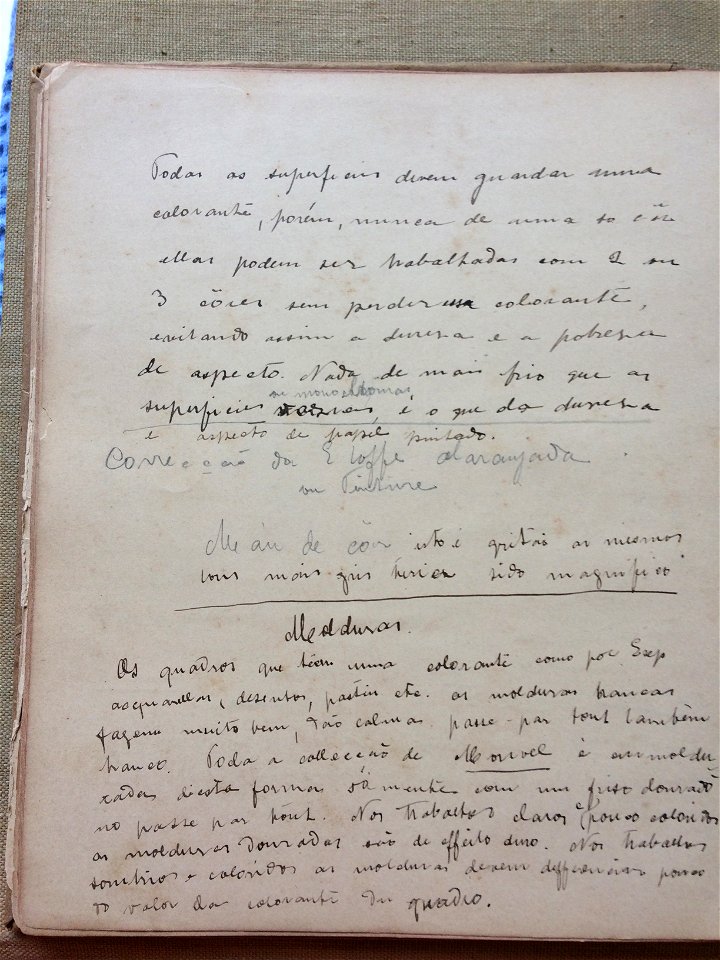 Todas as superficies devem guardar uma
colorante, porém, nunca de uma so côr
ellas podem ser trabalhadas com 2 ou
3 côres sem perder uma colorante,
evitando assim a duresa e a pobresa
de aspecto. Nada de mais frio que as
ou monochromas
superficies é o que da duresa
e aspecto de papel pintado.
Correcção da Etoffe alaranjada
ou Tinture
Máu de côr isto é gritão os mesmos
tons mais gris teria sido magnifico
Molduras.
Os quadros que têem uma colorante como por Exep
acquarellas, desenhos, pastin etc. as molduras brancas
fazem muito bem, são calmas. passe-par tout também
branco. Toda a collecção de é enmoldu
radas desta forma sómente com um friso dourado
no passe par tout. Nos trabalhos claros e pouco coloridos
as molduras douradas são de effeito duro. Nos trabalhos
sombrios e coloridos as molduras devem differenciar pouco
do valor da colorante du quadro.